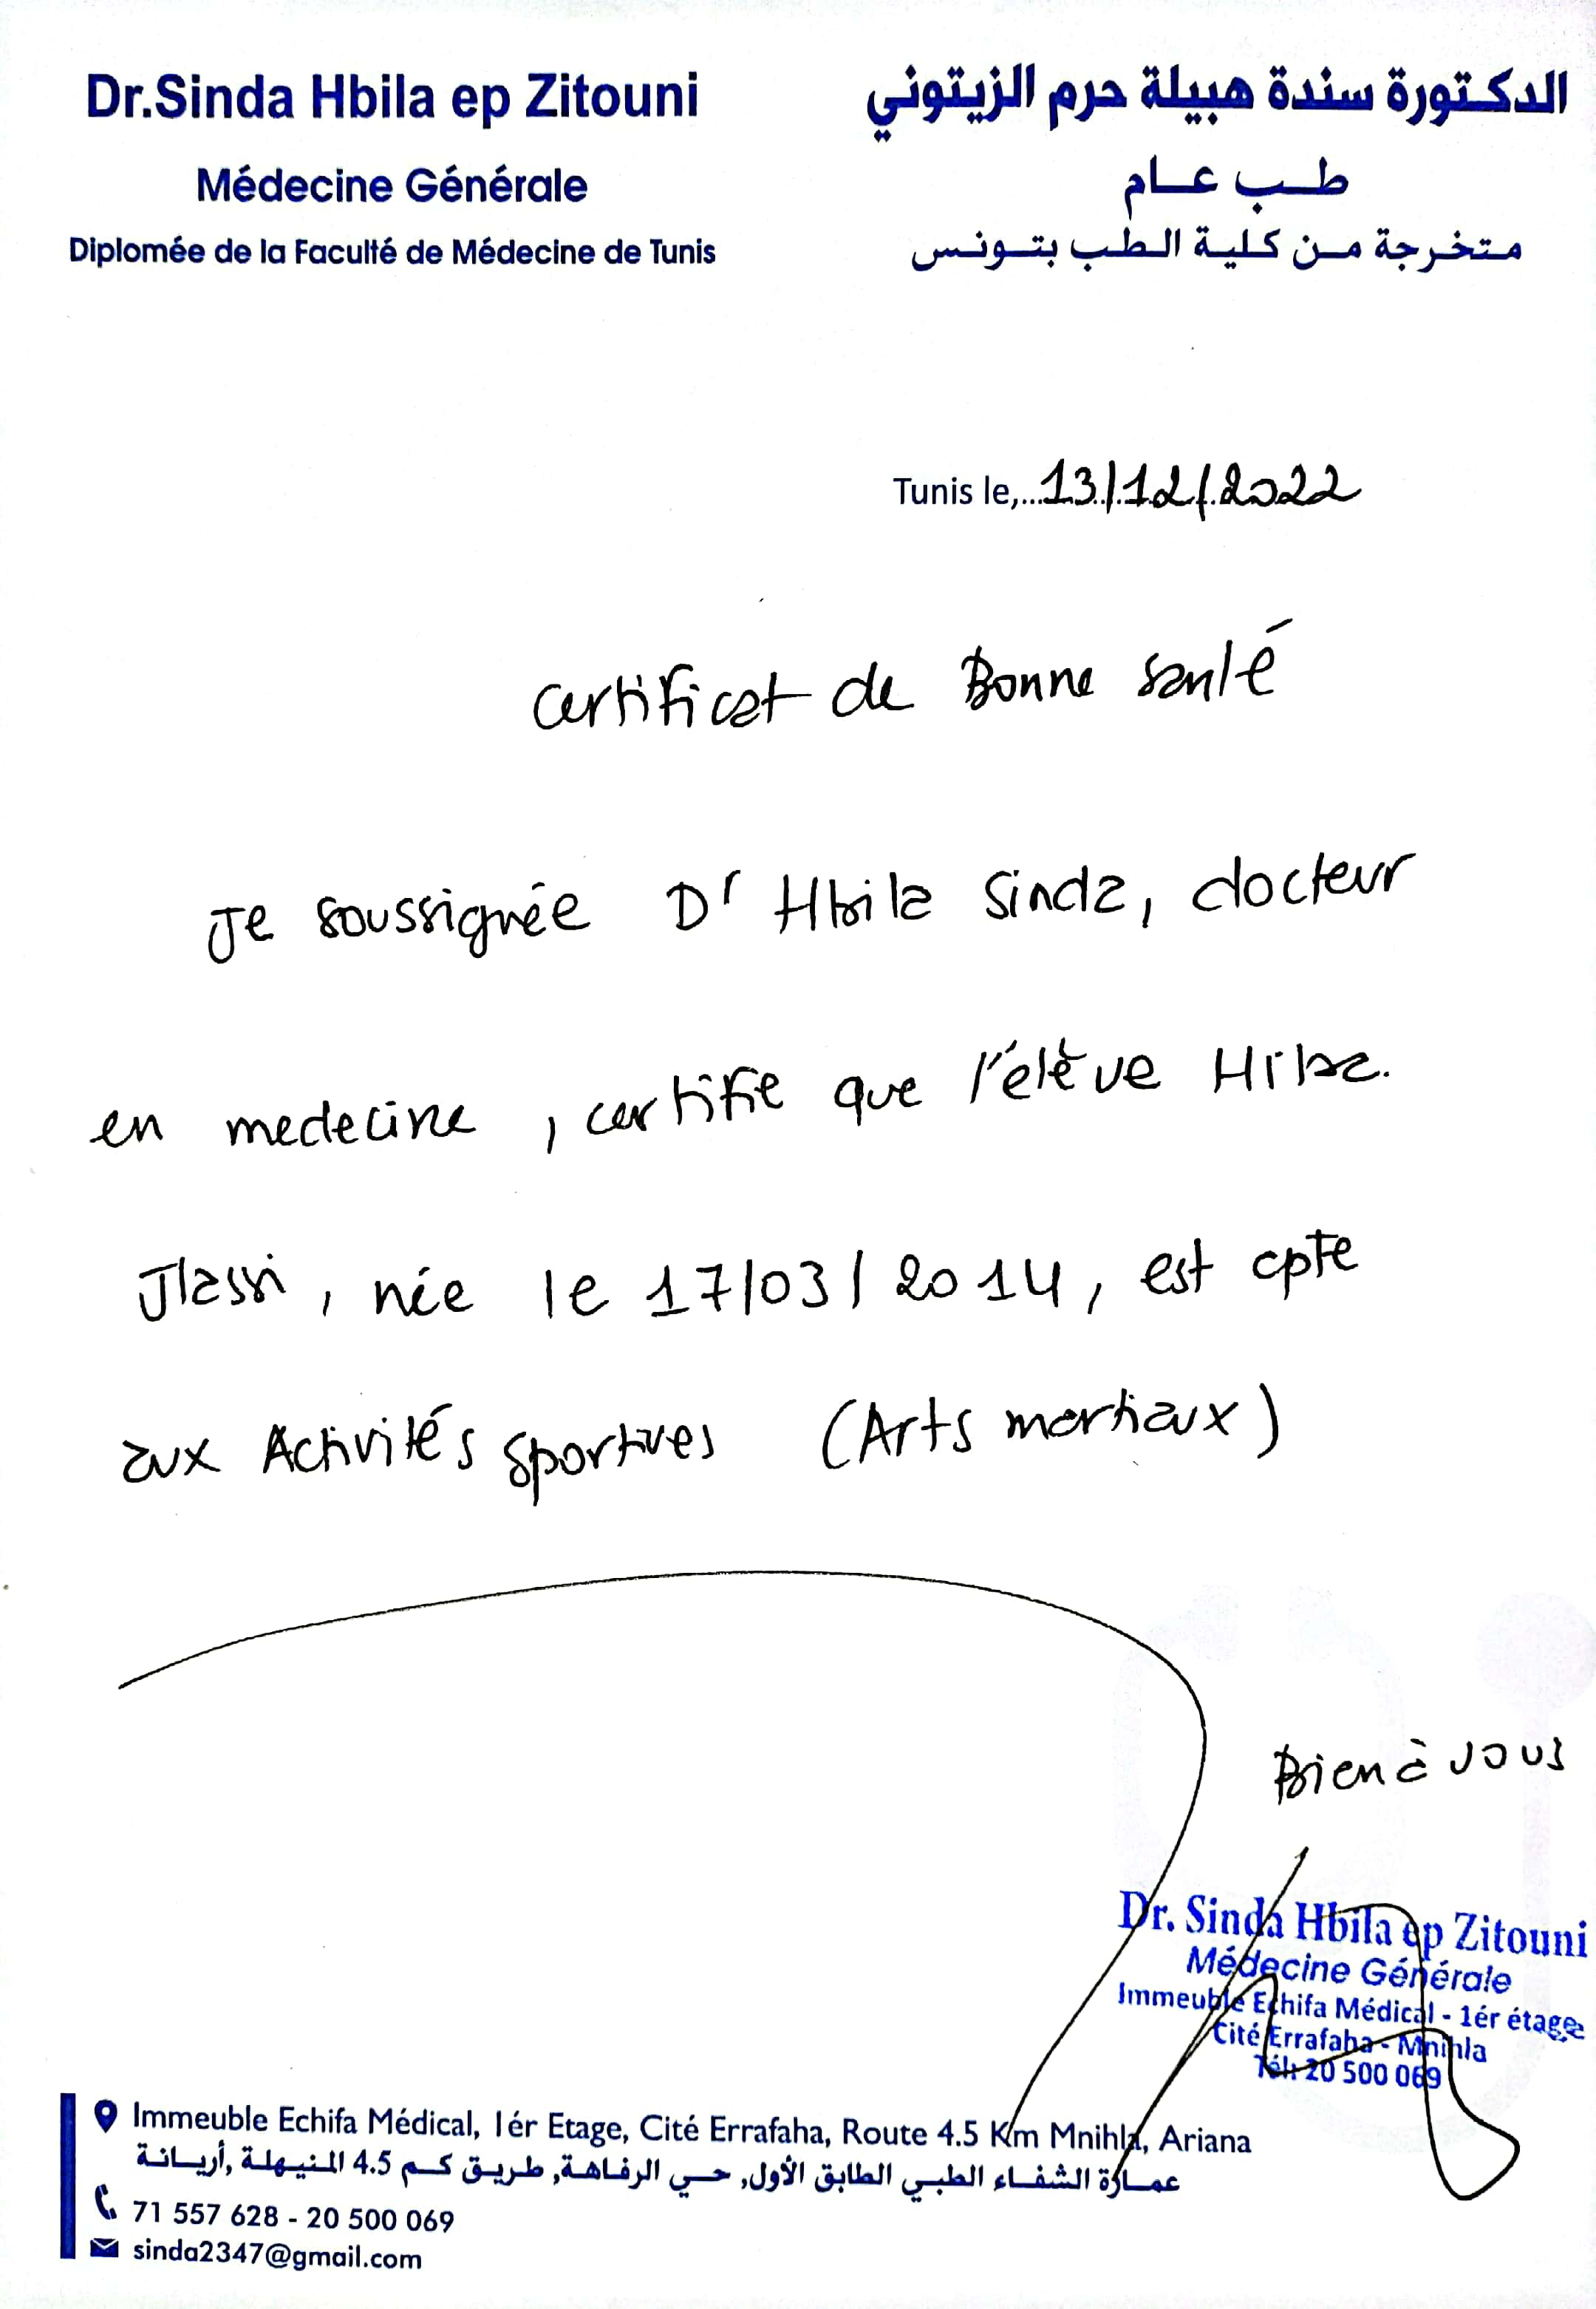 Dr.Sinda Hbila ep Zitouni
Médecine Générale
Diplomée de la Faculté de Médecine de Tunis
الدكتورة سندة هبيلة حرم الزيتوني
طب عام
متخرجة من كلية الطب بتونس
Tunis le,...13/12/2022
Certificat de Bonne santé
Je soussignée Dr Hbila Sinda, docteur
en medecine, certifie que l'élève Hiba
Jlassi, née le 17/03/2014, est apte
aux Activités sportives (Arts martiaux)
Bien à vous
Dr. Sinda Hbila ep Zitouni
Médecine Générale
Immeuble Echifa Médical - 1ér étage
Cité Errafaha - Mnihla
Tél: 20 500 069
Immeuble Echifa Médical, 1ér Etage, Cité Errafaha, Route 4.5 Km Mnihla, Ariana
عمارة الشفاء الطبي الطابق الأول, حي الرفاهة, طريق كم 4.5 المنيهلة, أريانة
71 557 628 - 20 500 069
sinda2347@gmail.com